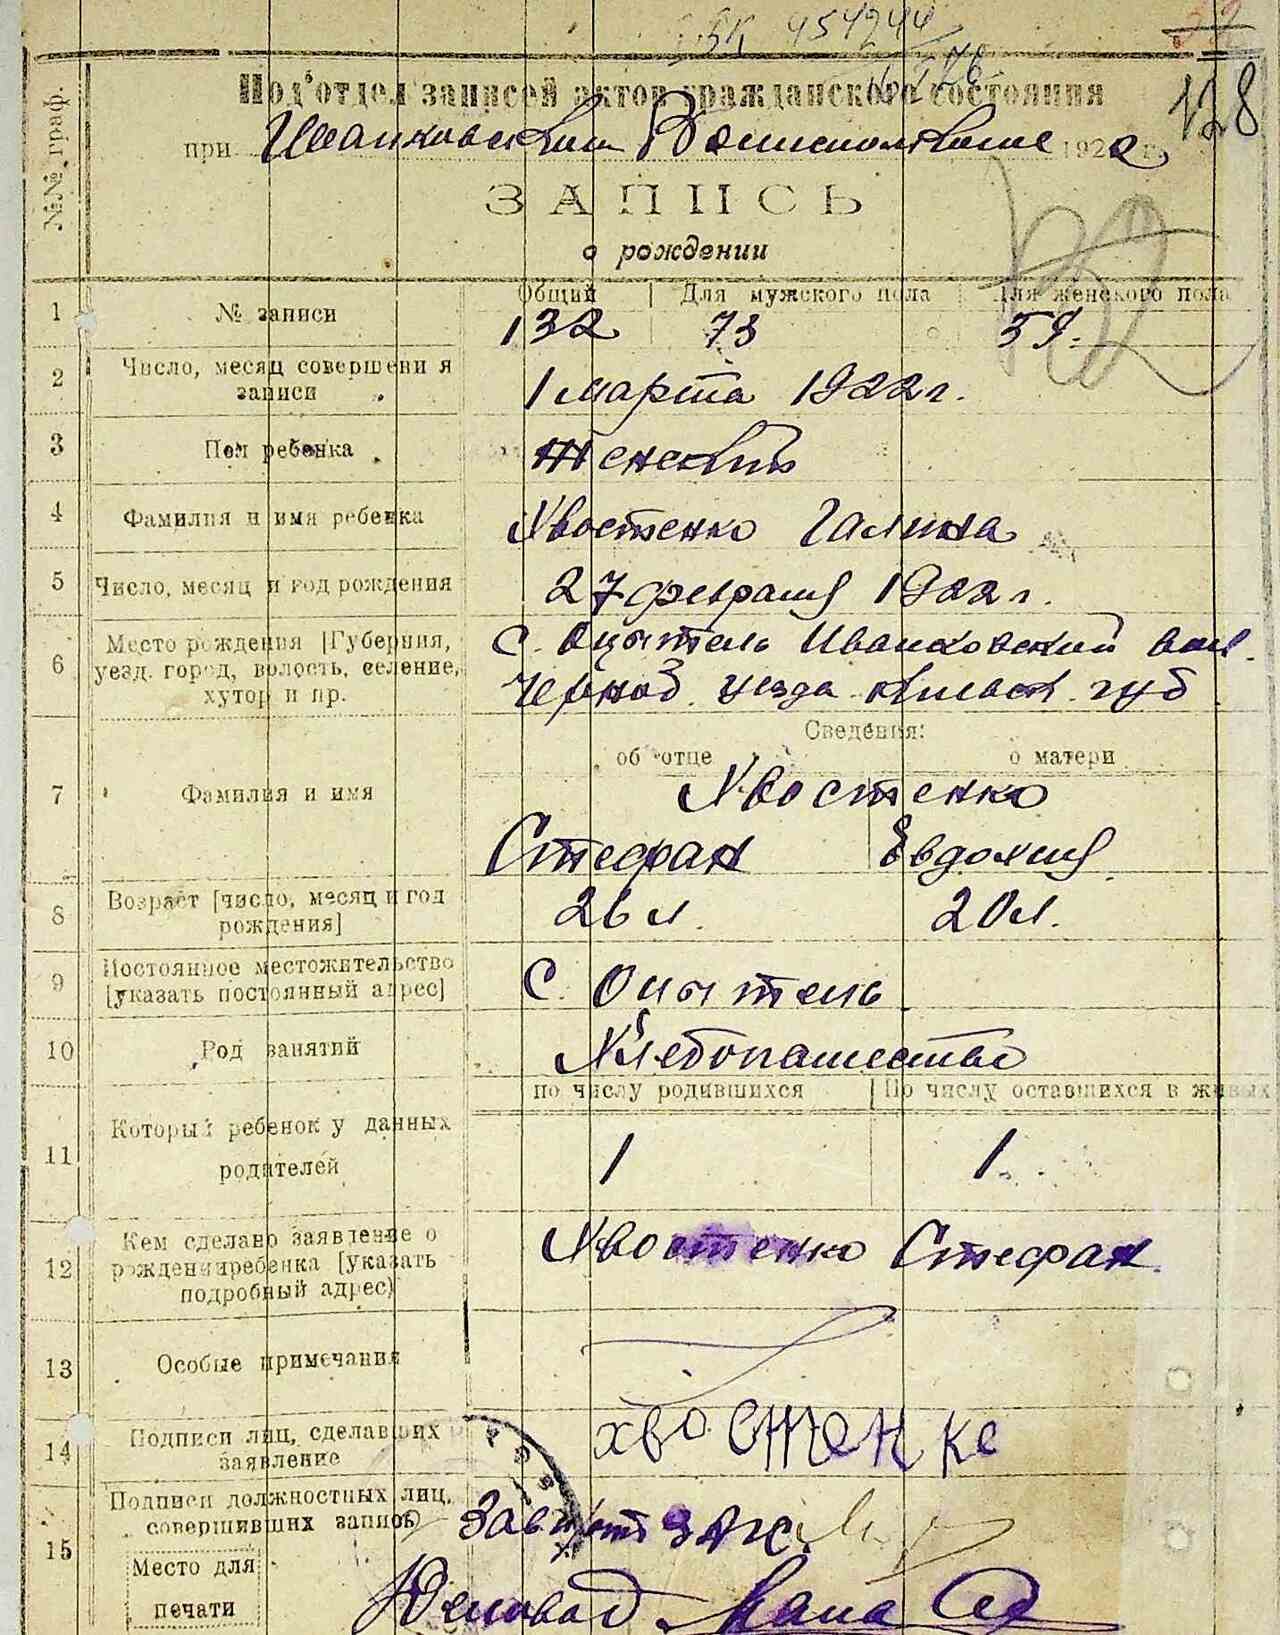 454244
128
№№ граф.
Под'отдел записей актов гражданского состояния
при Иванковском Волисполкоме 1922 г.
ЗАПИСЬ
о рождении
Общий Для мужского пола Для женского пола
1 № записи 132 73 59.
2 Число, месяц совершения
записи 1 марта 1922 г.
3 Пол ребенка Женский
4 Фамилия и имя ребенка Хвостенко Галина
5 Число, месяц и год рождения 27 февраля 1922 г.
6 Место рождения [Губерния,
уезд. город, волость, селение,
хутор и пр.
с. Оцытель Иванковский вол.
Черноб. уезда Киевск. губ
Сведения:
об отце о матери
7 Фамилия и имя Хвостенко
Стефан Евдокия
8 Возраст [число, месяц и год
рождения] 26 л. 20 л.
9 Постоянное местожительство
[указать постоянный адрес] с. Оцытель
10 Род занятий Хлебопашество
по числу родившихся По числу оставшихся в живых
11 Который ребенок у данных
родителей 1 1
12 Кем сделано заявление о
рождении ребенка [указать
подробный адрес) Хвостенко Стефан
13 Особые примечания
14 Подписи лиц, сделавших
заявление хвостенко
15 Подписи должностных лиц,
совершивших запись
Место для
печати